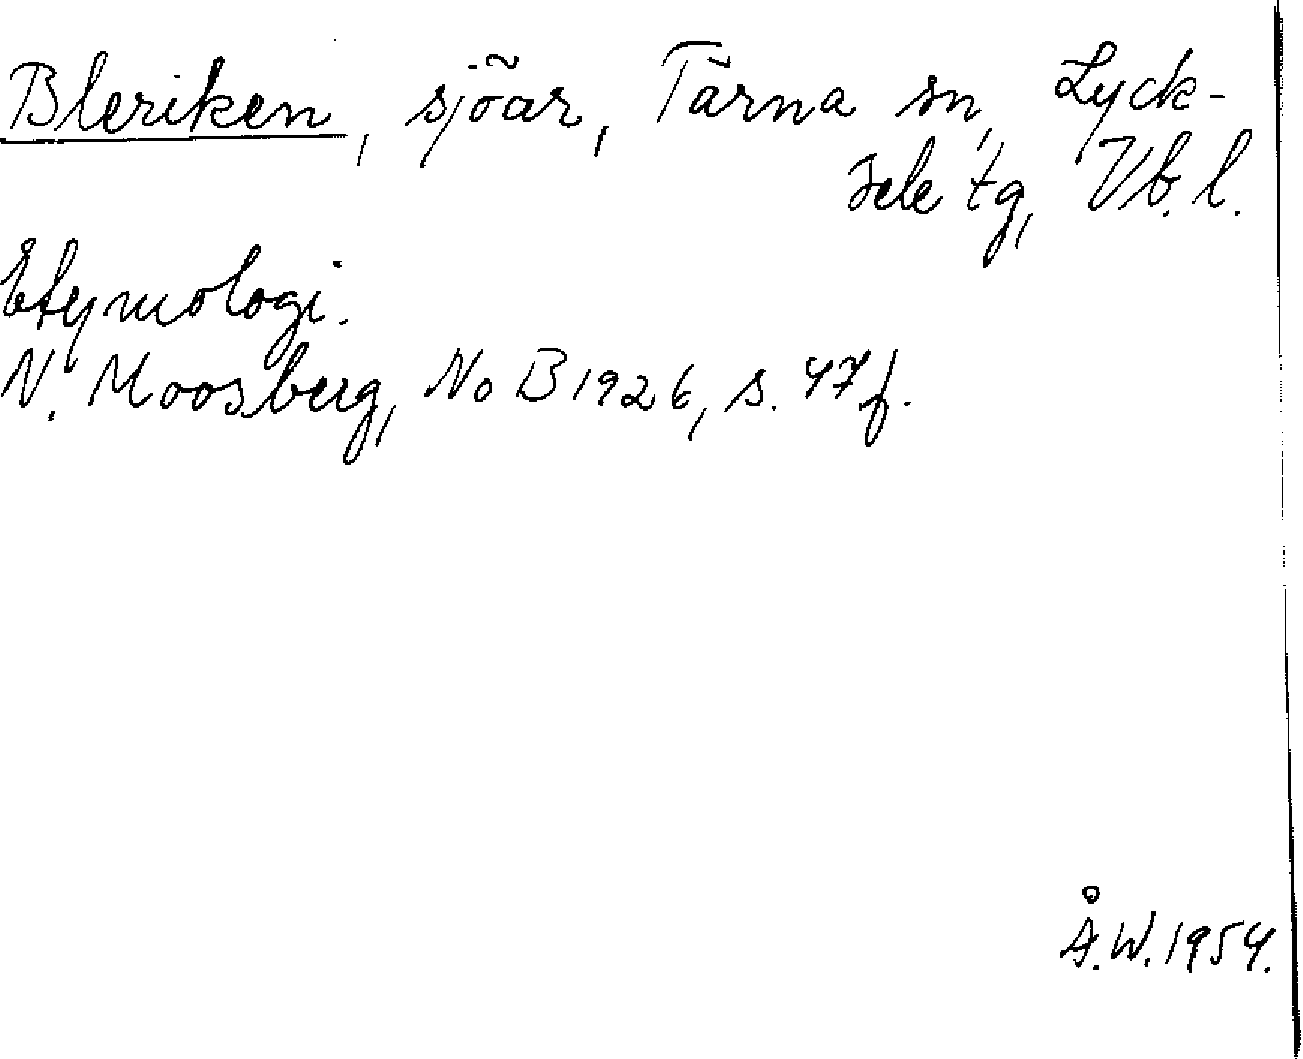 Bleriken, sjöar, Tärna sn, Lyck-
sele tg, Vb. l.
Etymologi.
N. Moosberg, NoB 1926, s. 47 f.
Å.W. 1954.